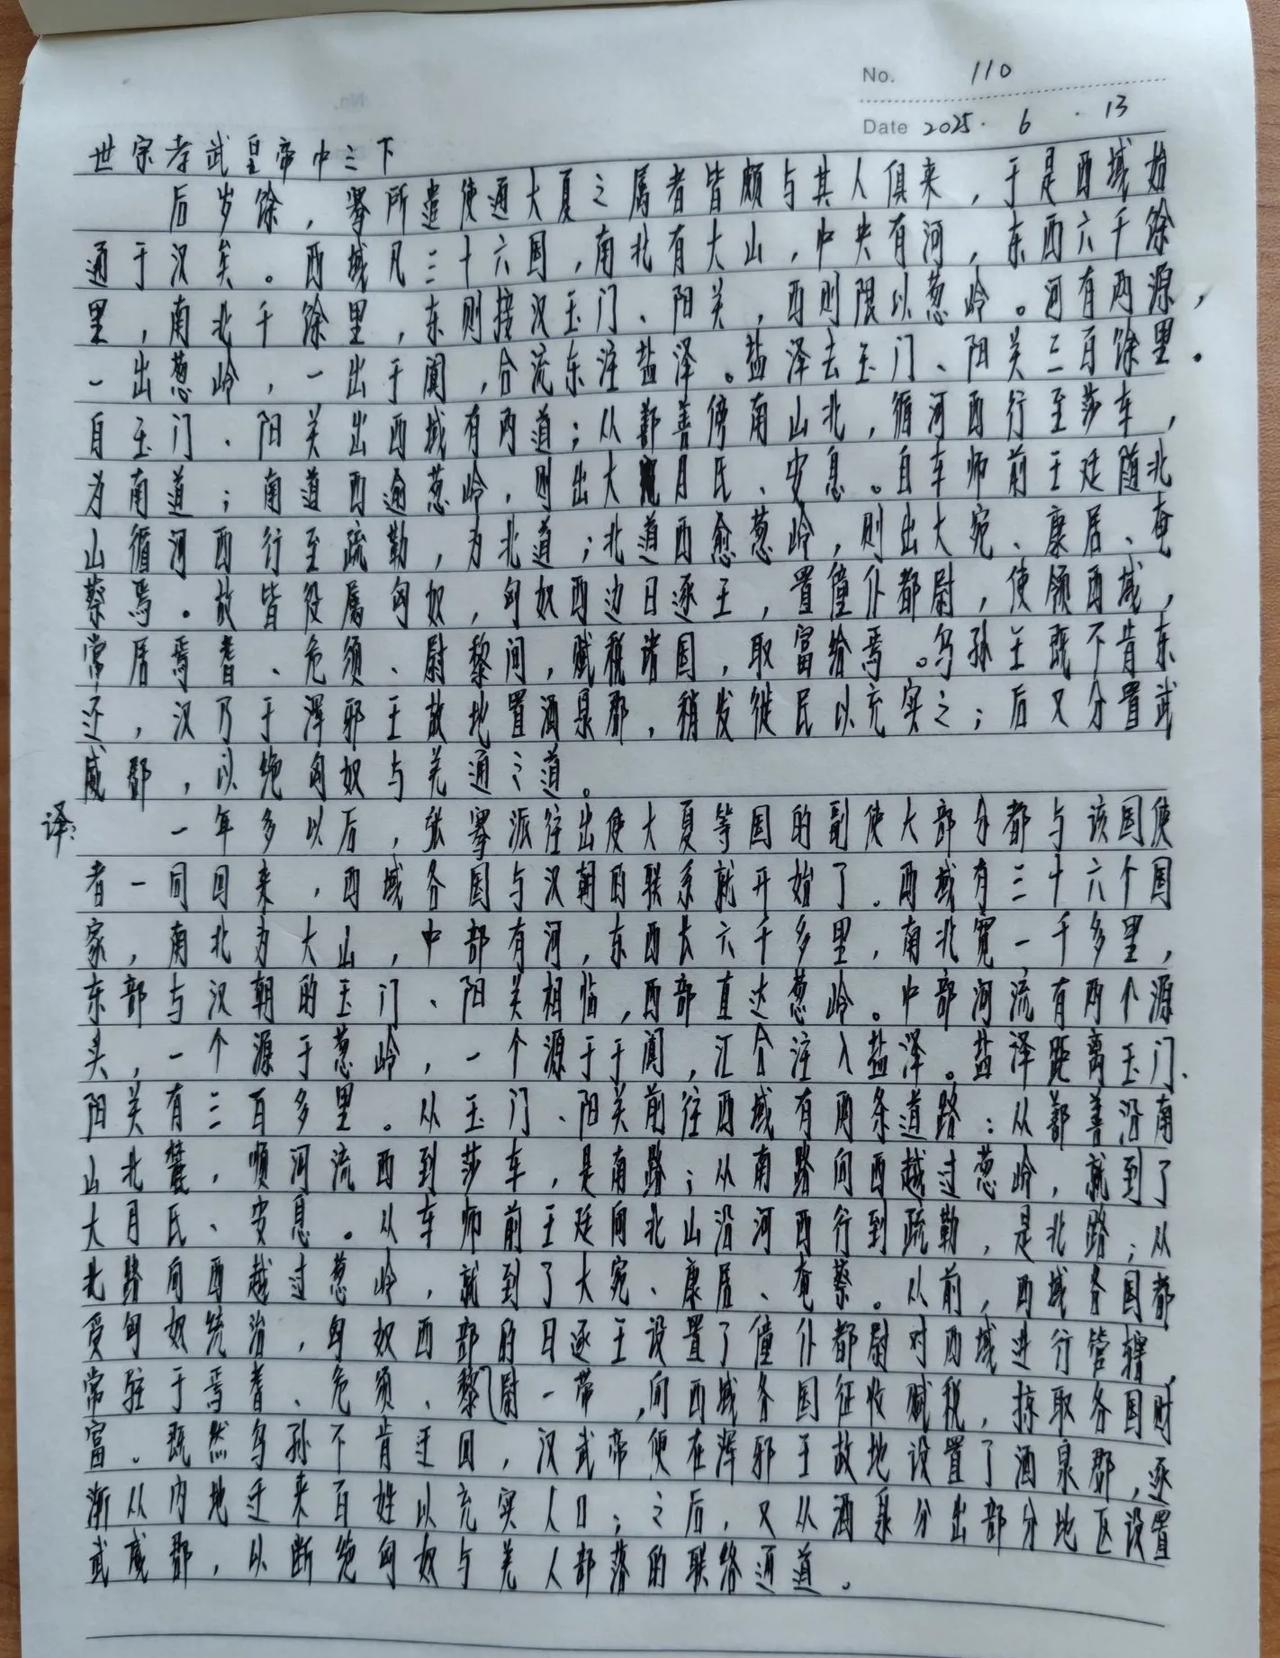 No. 110
Date 2025. 6. 13
世宗孝武皇帝中之下
后岁馀，骞所遣使通大夏之属者皆颇与其人俱来，于是西域始
通于汉矣。西域凡三十六国，南北有大山，中央有河，东西六千馀
里，南北千馀里，东则接汉玉门、阳关，西则限以葱岭。河有两源，
一出葱岭，一出于阗，合流东注盐泽。盐泽去玉门、阳关三百馀里。
自玉门、阳关出西域有两道；从鄯善傍南山北，循河西行至莎车，
为南道；南道西逾葱岭，则出大月氏、安息。自车师前王廷随北
山循河西行至疏勒，为北道；北道西愈葱岭，则出大宛、康居、奄
蔡焉。故皆役属匈奴，匈奴西边日逐王，置僮仆都尉，使领西域，
常居焉耆、危须、尉黎间，赋税诸国，取富给焉。乌孙王既不肯东
还，汉乃于浑邪王故地置酒泉郡，稍发徙民以充实之；后又分置武
威郡，以绝匈奴与羌通之道。
译：一年多以后，张骞派往出使大夏等国的副使大部分都与该国使
者一同回来，西域各国与汉朝的联系就开始了。西域有三十六个国
家，南北为大山，中部有河，东西长六千多里，南北宽一千多里，
东部与汉朝的玉门、阳关相临，西部直达葱岭。中部河流有两个源
头，一个源于葱岭，一个源于于阗，汇合注入盐泽。盐泽距离玉门、
阳关有三百多里。从玉门、阳关前往西域有两条道路：从鄯善沿南
山北麓，顺河流西到莎车，是南路；从南路向西越过葱岭，就到了
大月氏、安息。从车师前王廷向北山沿河西行到疏勒，是北路；从
北路向西越过葱岭，就到了大宛、康居、奄蔡。从前，西域各国都
受匈奴统治，匈奴西部的日逐王设置了僮仆都尉对西域进行管辖，
常驻于焉耆、危须、黎尉一带，向西域各国征收赋税，掠取各国财
富。既然乌孙不肯迁回，汉武帝便在浑邪王故地设置了酒泉郡，逐
渐从内地迁来百姓以充实人口；之后，又从酒泉分出部分地区设置
武威郡，以断绝匈奴与羌人部落的联络通道。